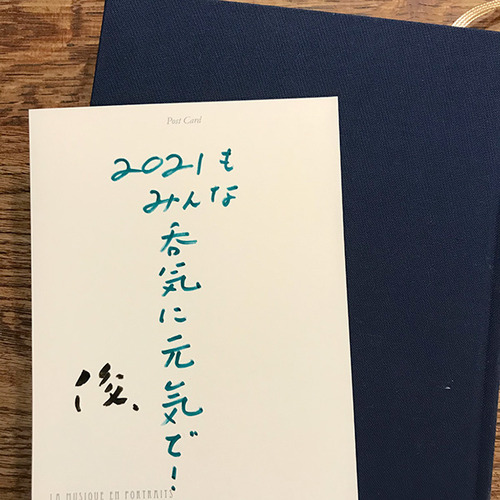 Post Card
2021も
みんな
呑気に元気で!
俊、
LA MUSIQUE EN PORTRAITS